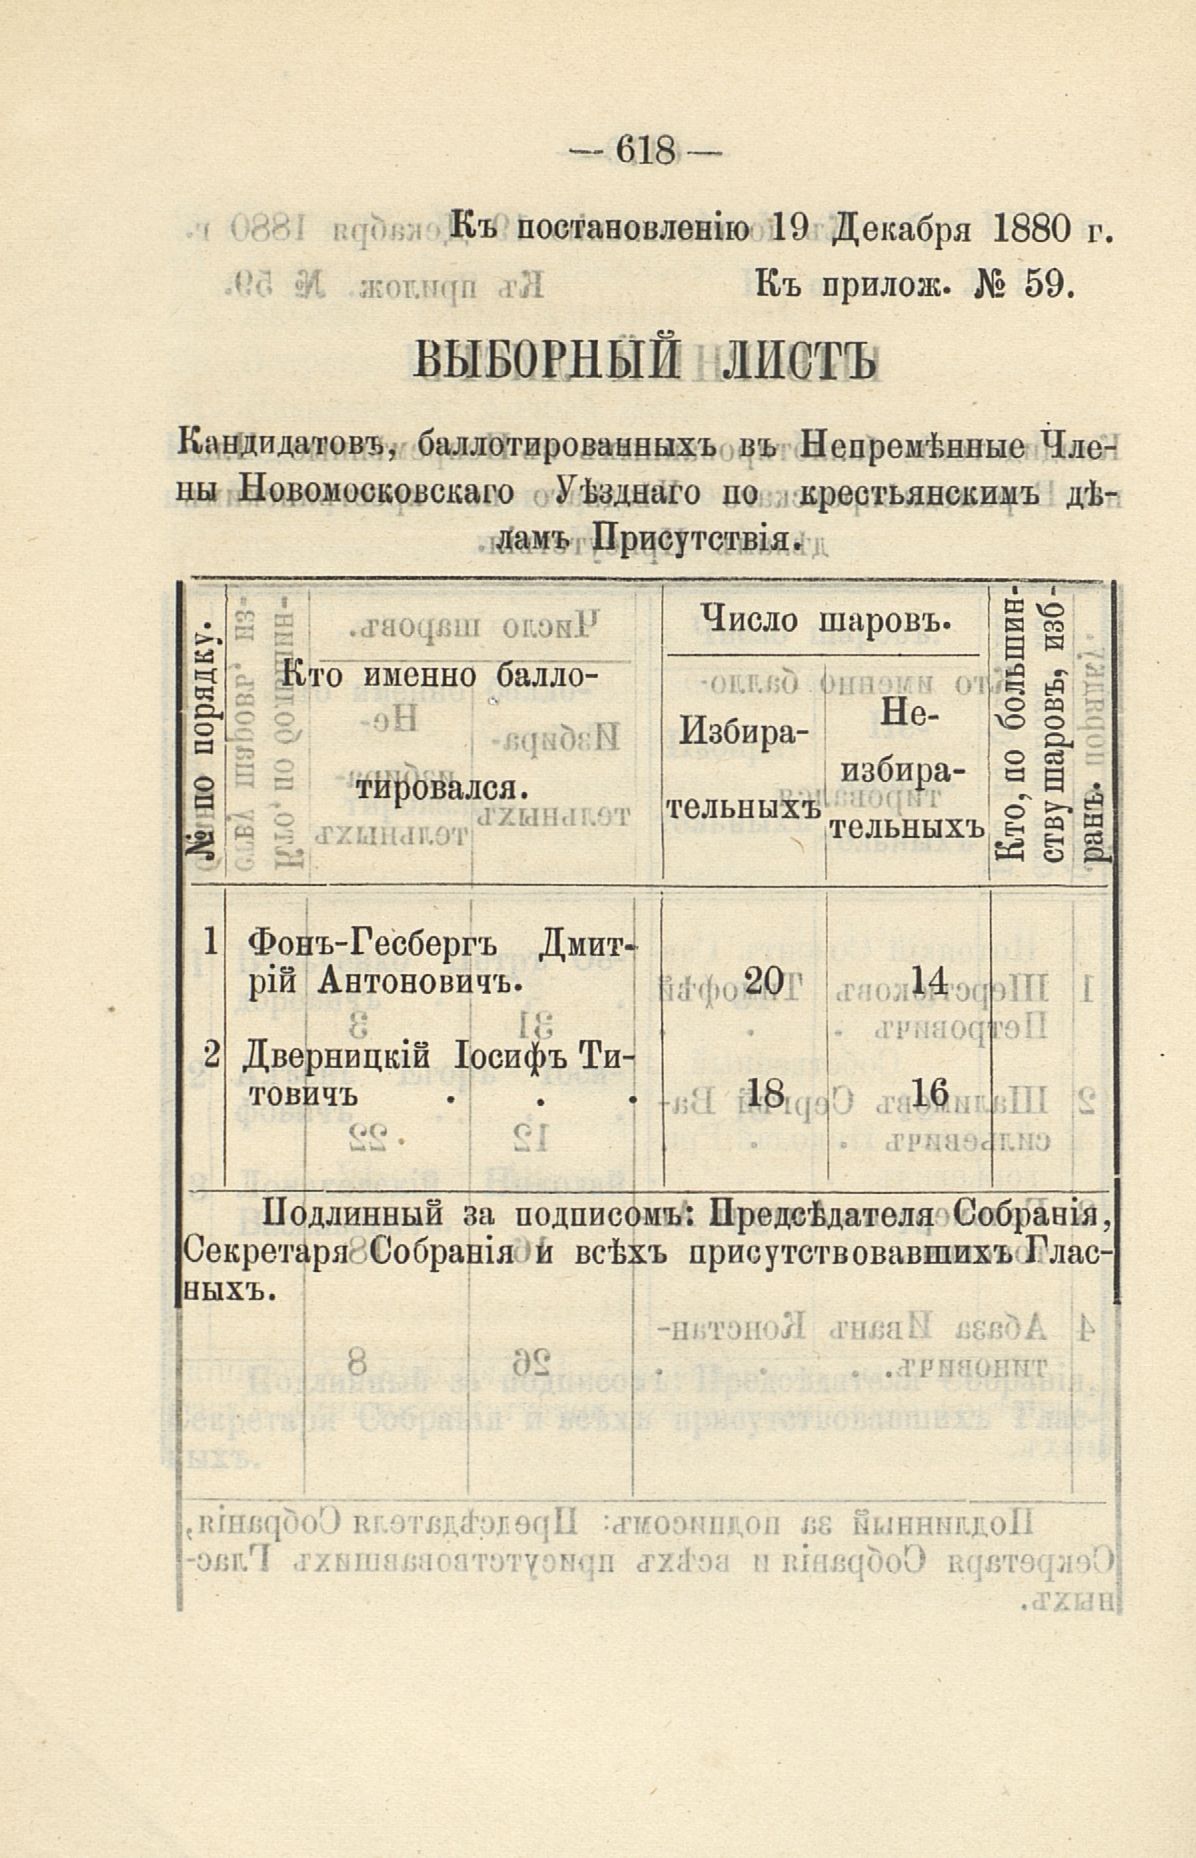 — 618 —
Къ постановленію 19 Декабря 1880 г.
Къ прилож. № 59.
ВЫБОРНЫЙ ЛИСТЪ
Кандидатовъ, баллотированныхъ въ Непремѣнные Чле-
ны Новомосковскаго Уѣзднаго по крестьянскимъ дѣ-
ламъ Присутствія.
№ по порядку.
Кто именно балло-
тировался.
Число шаровъ.
Избира-
тельныхъ
Не-
избира-
тельныхъ
Кто, по большин-
ству шаровъ, изб-
ранъ.
1 Фонъ-Гесбергъ Дмит-
рій Антоновичъ. 20 14
2 Дверницкій Іосифъ Ти-
товичъ . . . 18 16
Подлинный за подписомъ: Предсѣдателя Собранія,
Секретаря Собранія и всѣхъ присутствовавшихъ Глас-
ныхъ.